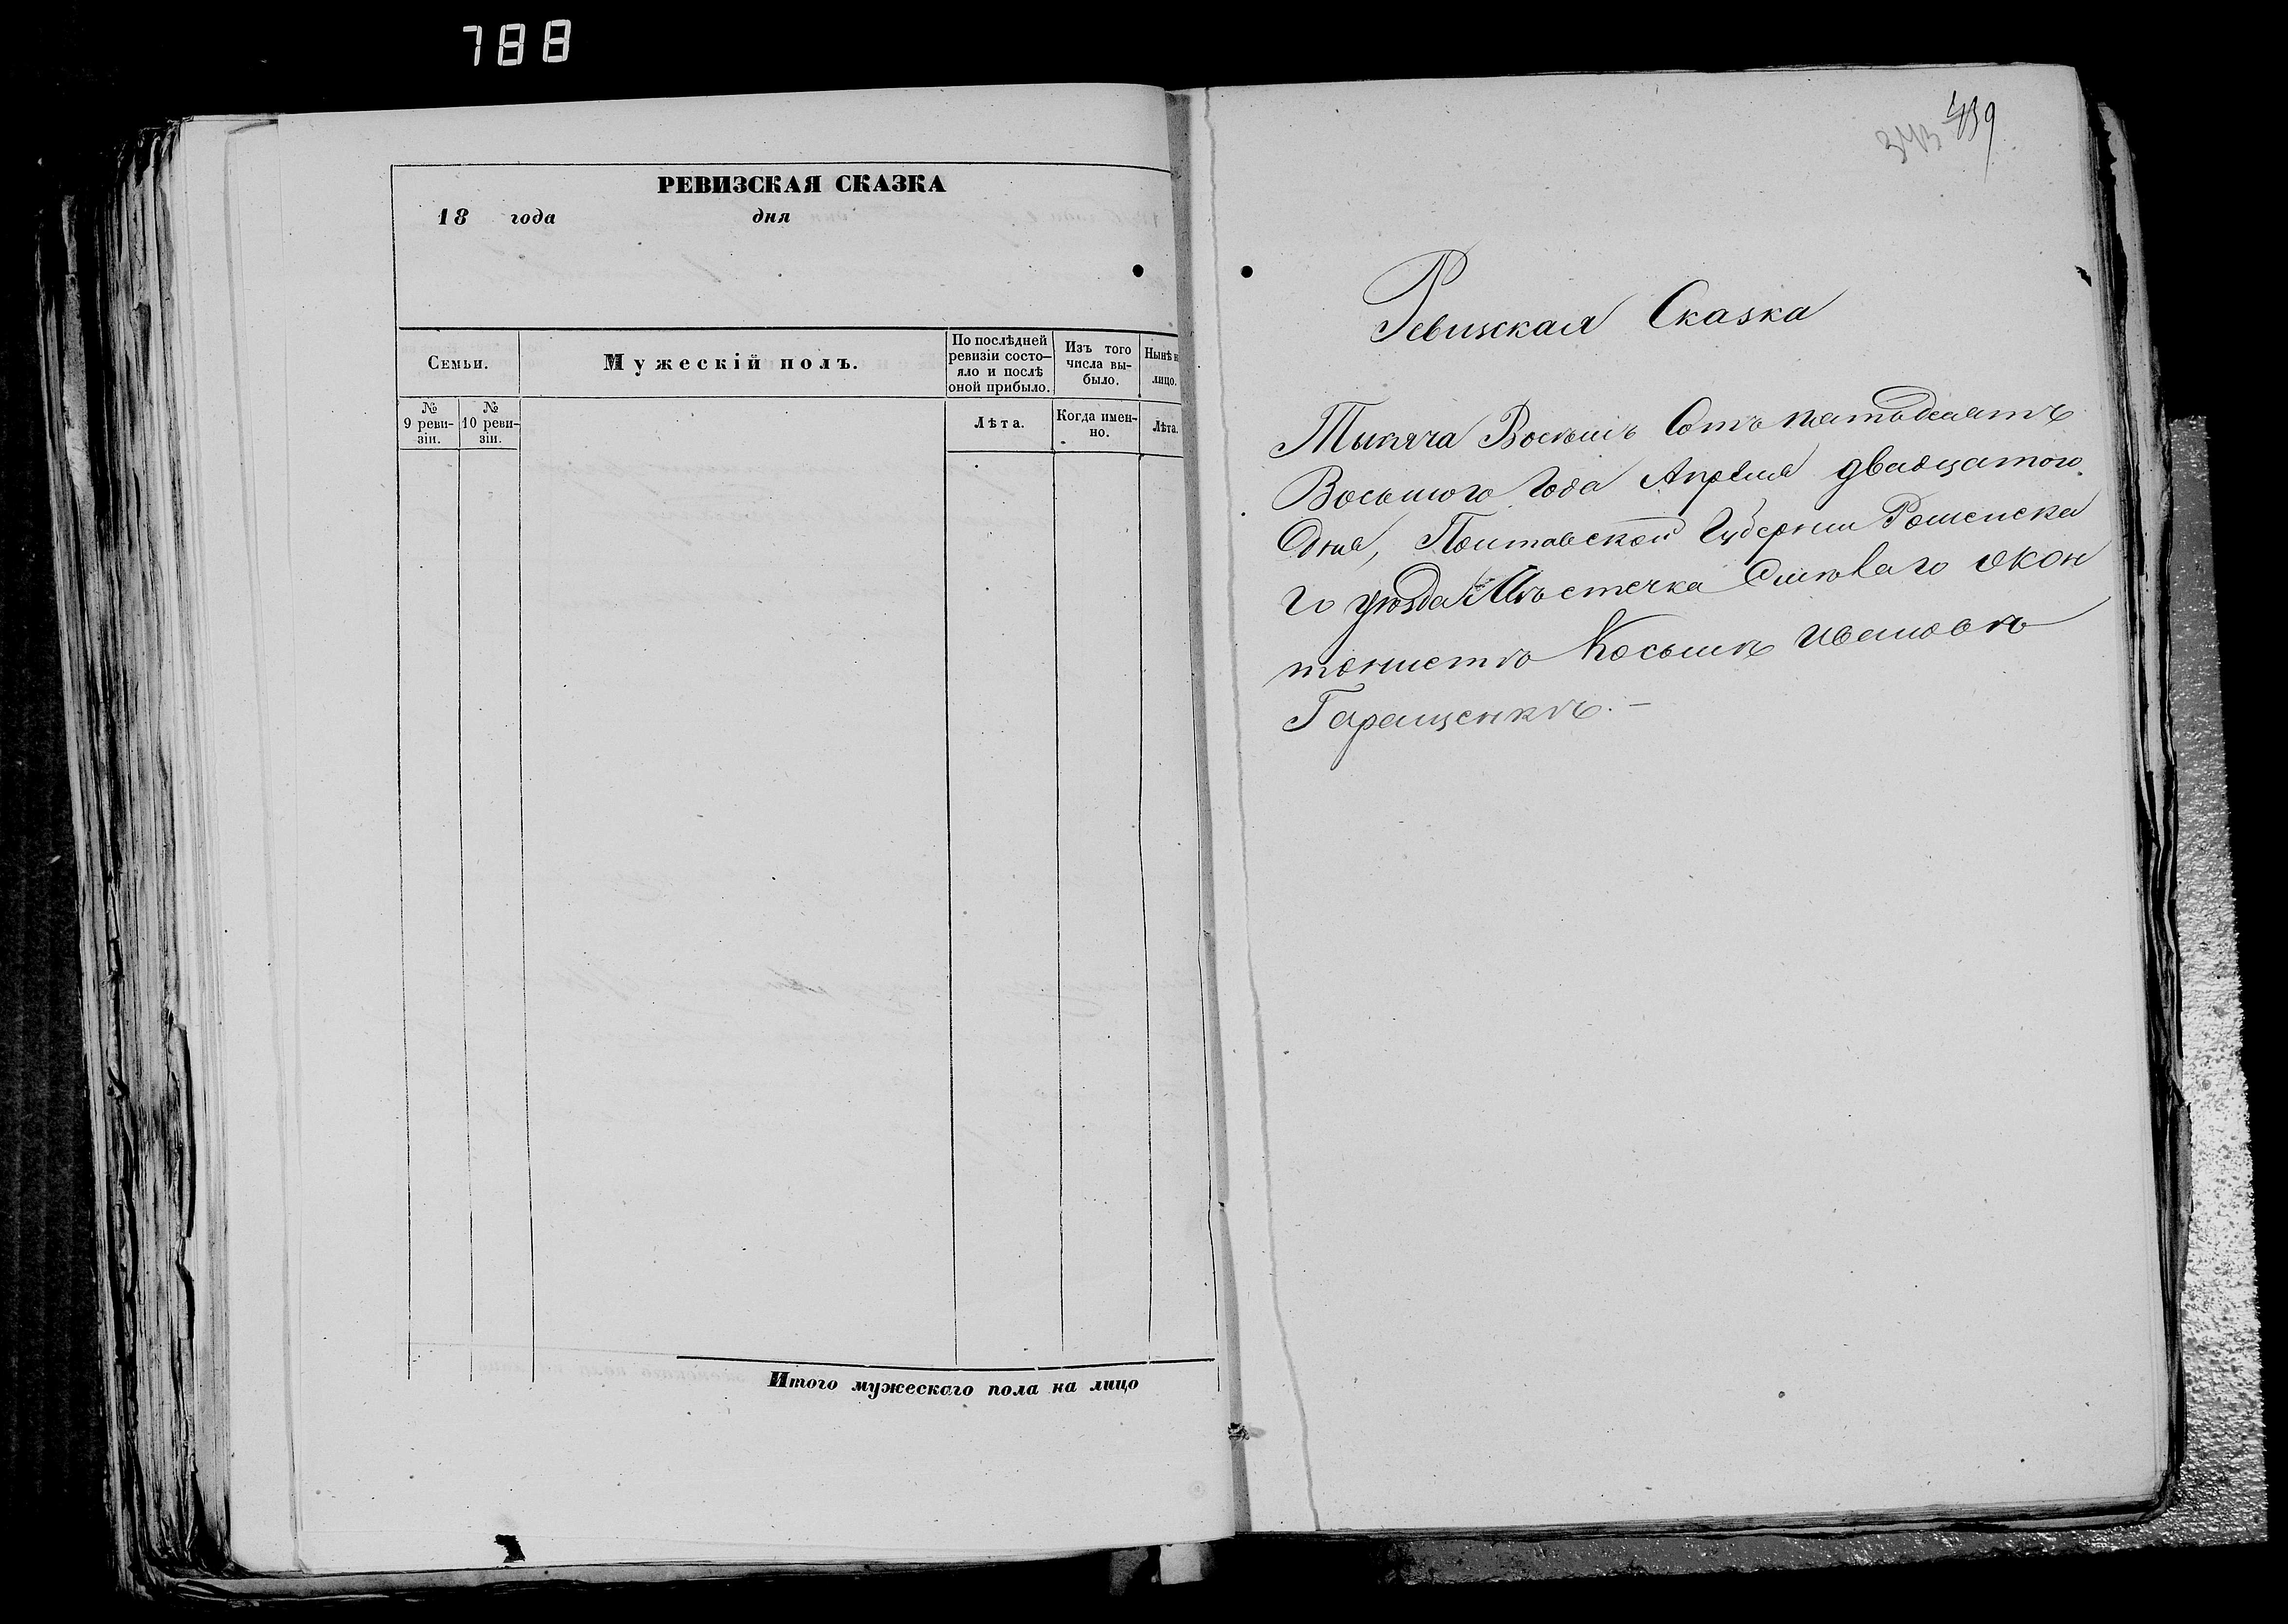 788
РЕВИЗСКАЯ СКАЗКА
18 года дня
Семьи.
Мужескій полъ.
По послѣдней ревизіи состо-
яло и послѣ
оной прибыло.
Изъ того
числа вы-
было.
Нынѣ н
лицо.
№
9 реви-
зіи.
№
10 реви-
зіи.
Лѣта.
Когда имен-
но.
Лѣта.
Итого мужескаго пола на лицо
343 439
Ревизская Сказка
Тысяча Восемь Сотъ пятьдесятъ
Восьмого Года Апреля двадцатого
Дня, Полтавской Губернии Роменска
го уѣзда Мѣстечка Смѣлаго о кон
тонистѣ Косьмѣ Ивановѣ
Геращенкѣ.—